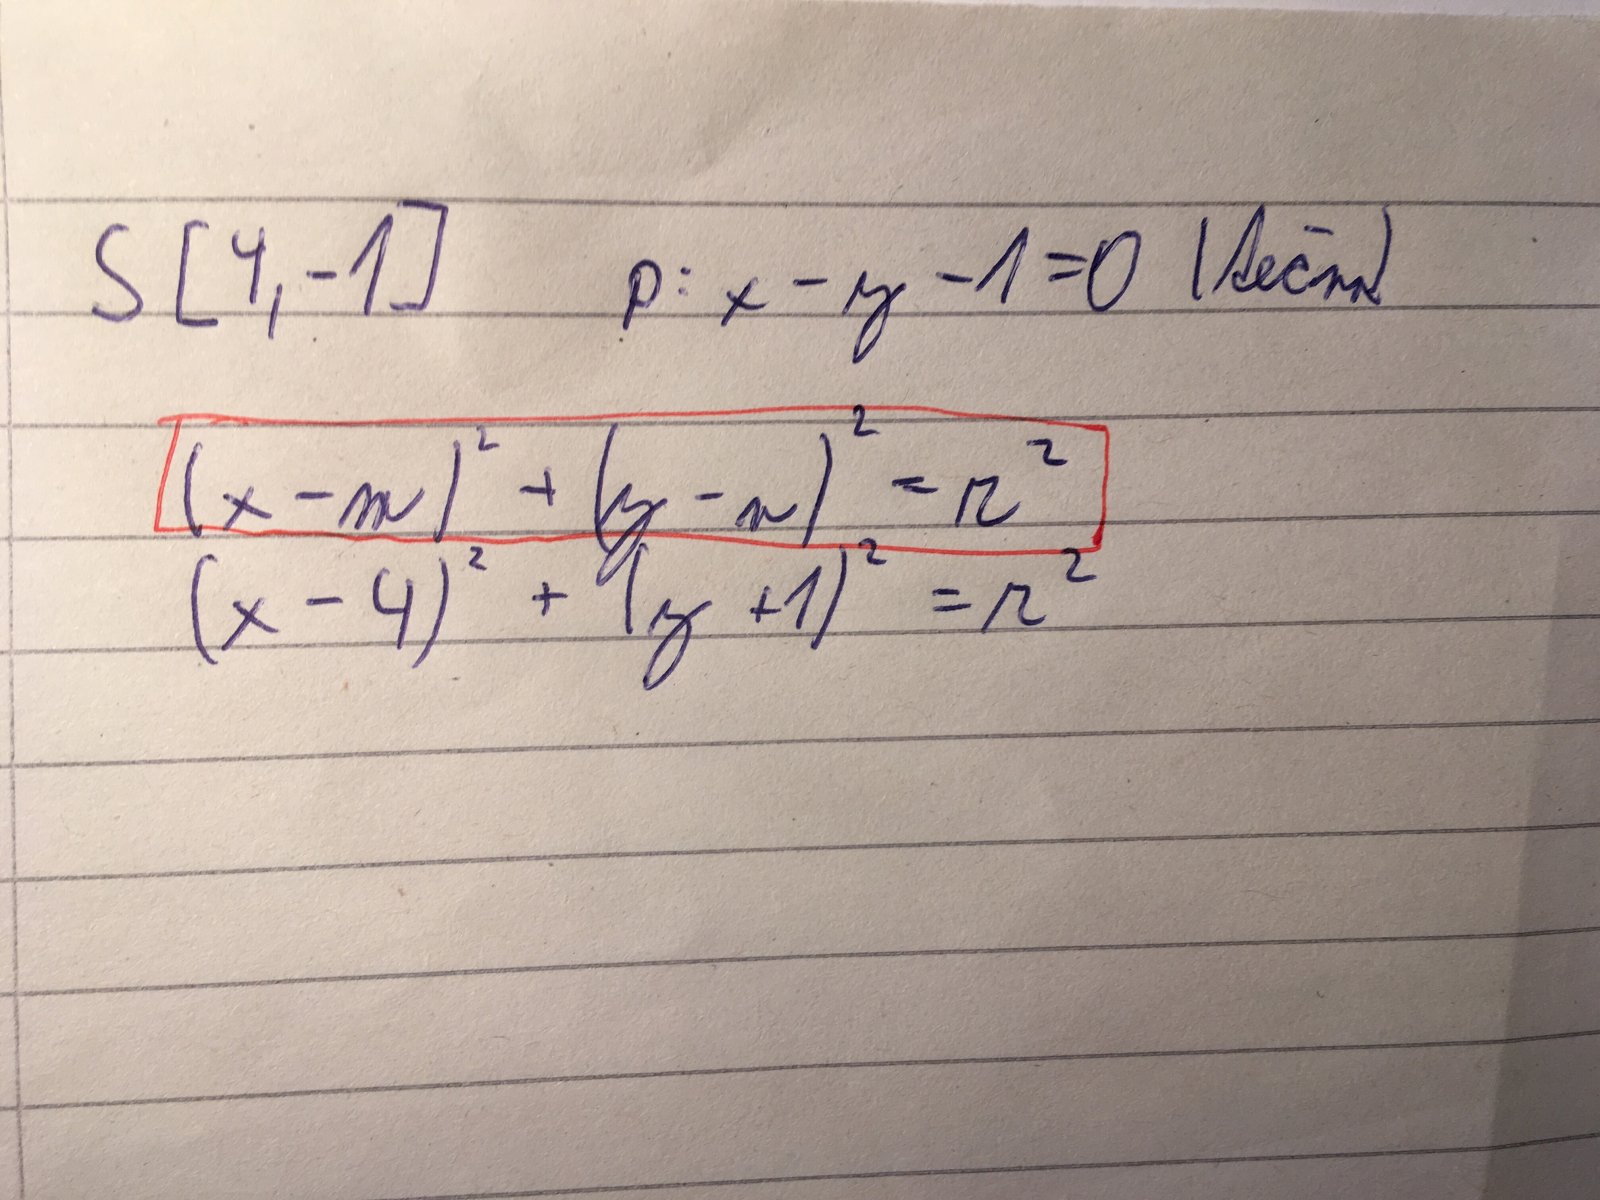 S[4,-1] p: x - y - 1 = 0 (sečna)
(x - m)² + (y - n)² = r²
(x - 4)² + (y + 1)² = r²